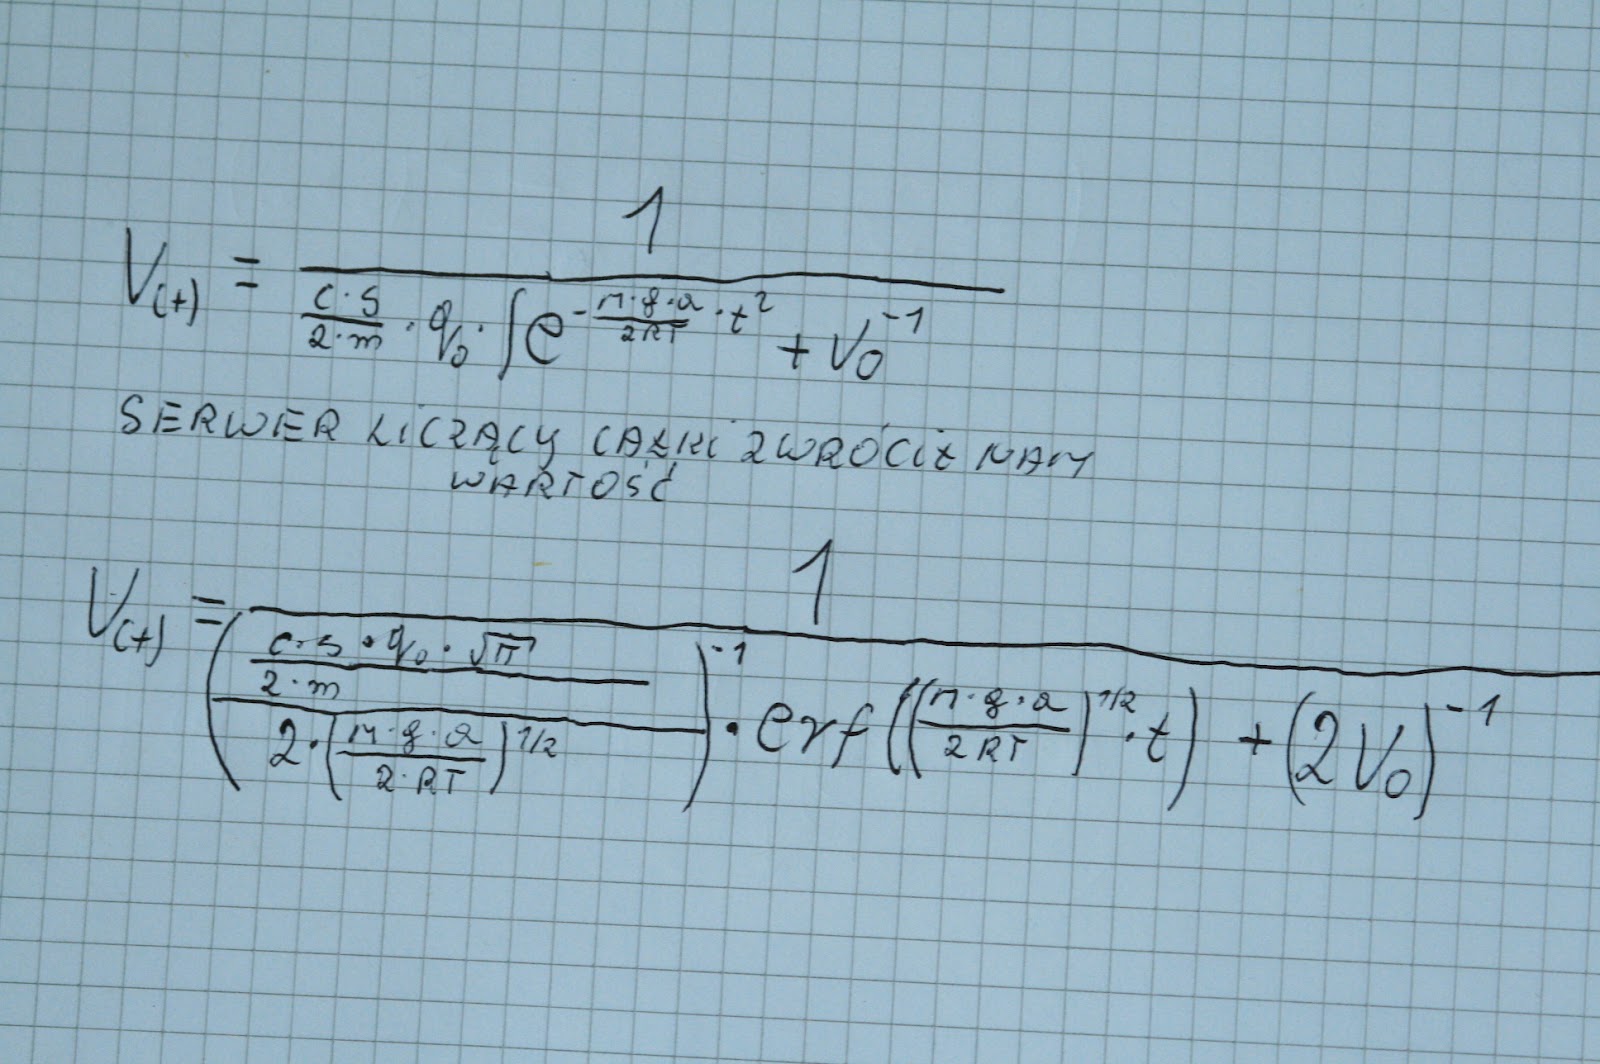 V(t) = 1 / (C·S/2·m · q₀ · ∫e^(-M·g·a/2RT · t²) + V₀⁻¹)
SERWER LICZĄCY CAŁKI ZWRÓCIŁ NAM
WARTOŚĆ
V(t) = 1 / (((C·S·q₀·√π / 2·m) / (2·(M·g·a/2·RT)^1/2))⁻¹ · erf((M·g·a/2RT)^1/2 · t) + (2V₀)⁻¹)